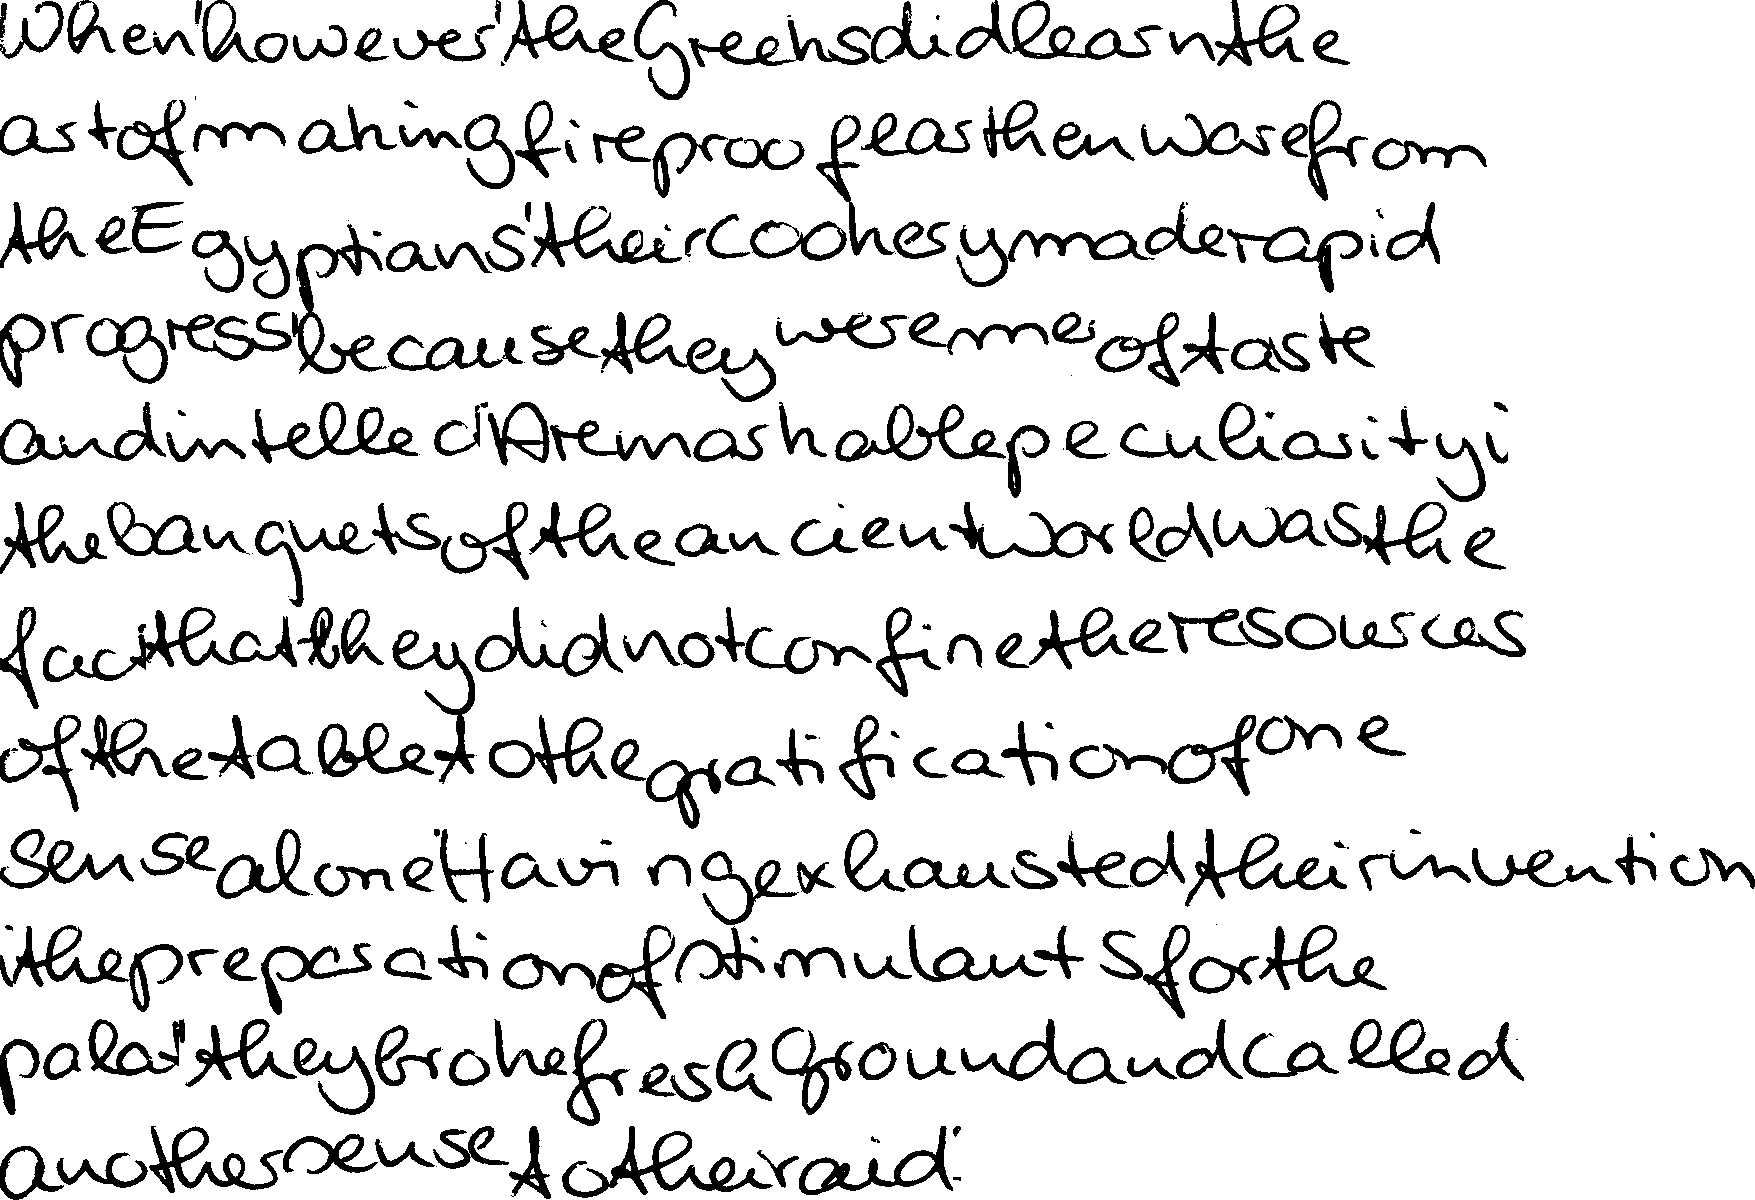 When ' however ' the Greeks did learn the
art of making fireproof earthenware from
the Egyptians ' their cookery made rapid
progress ' because they were me of taste
and intellec ' A remarkable peculiarity i
the banquets of the ancient world was the
fact that they did not confine the resources
of the table to the gratification of one
sense alone ' Having exhausted their invention
i the preparation of stimulants for the
palat ' they broke fresh ground and called
another sense to their aid '